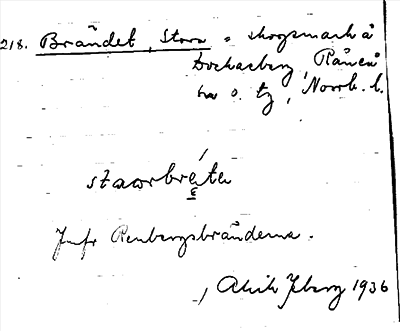 218. Brändet, Stora = skogsmark å
Bockasberg, Råneå
sn o. tg, Norrb. l.
staorbräta
Jmfr Renbergsbränderna.
Alvik Isberg 1936